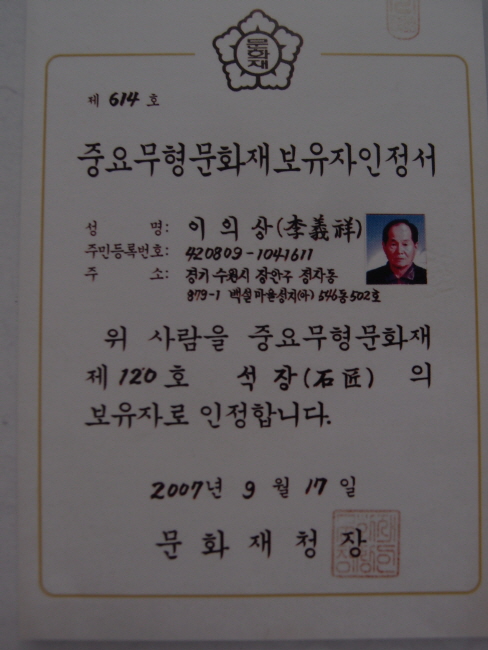 문화재
제 614 호
중요무형문화재보유자인정서
성 명: 이 의 상(李義祥)
주민등록번호: 420809-1041611
주 소: 경기 수원시 장안구 정자동
879-1 백설마을성지(아) 546동 502호
위 사람을 중요무형문화재
제 120 호 석 장(石匠) 의
보유자로 인정합니다.
2007년 9 월 17 일
문 화 재 청 장